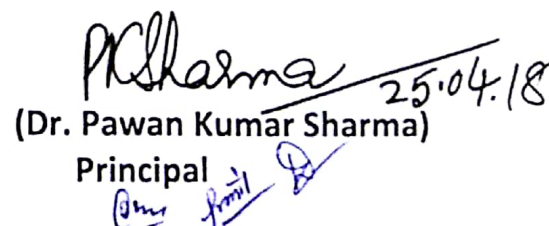 PKSharma
25.04.18
(Dr. Pawan Kumar Sharma)
Principal